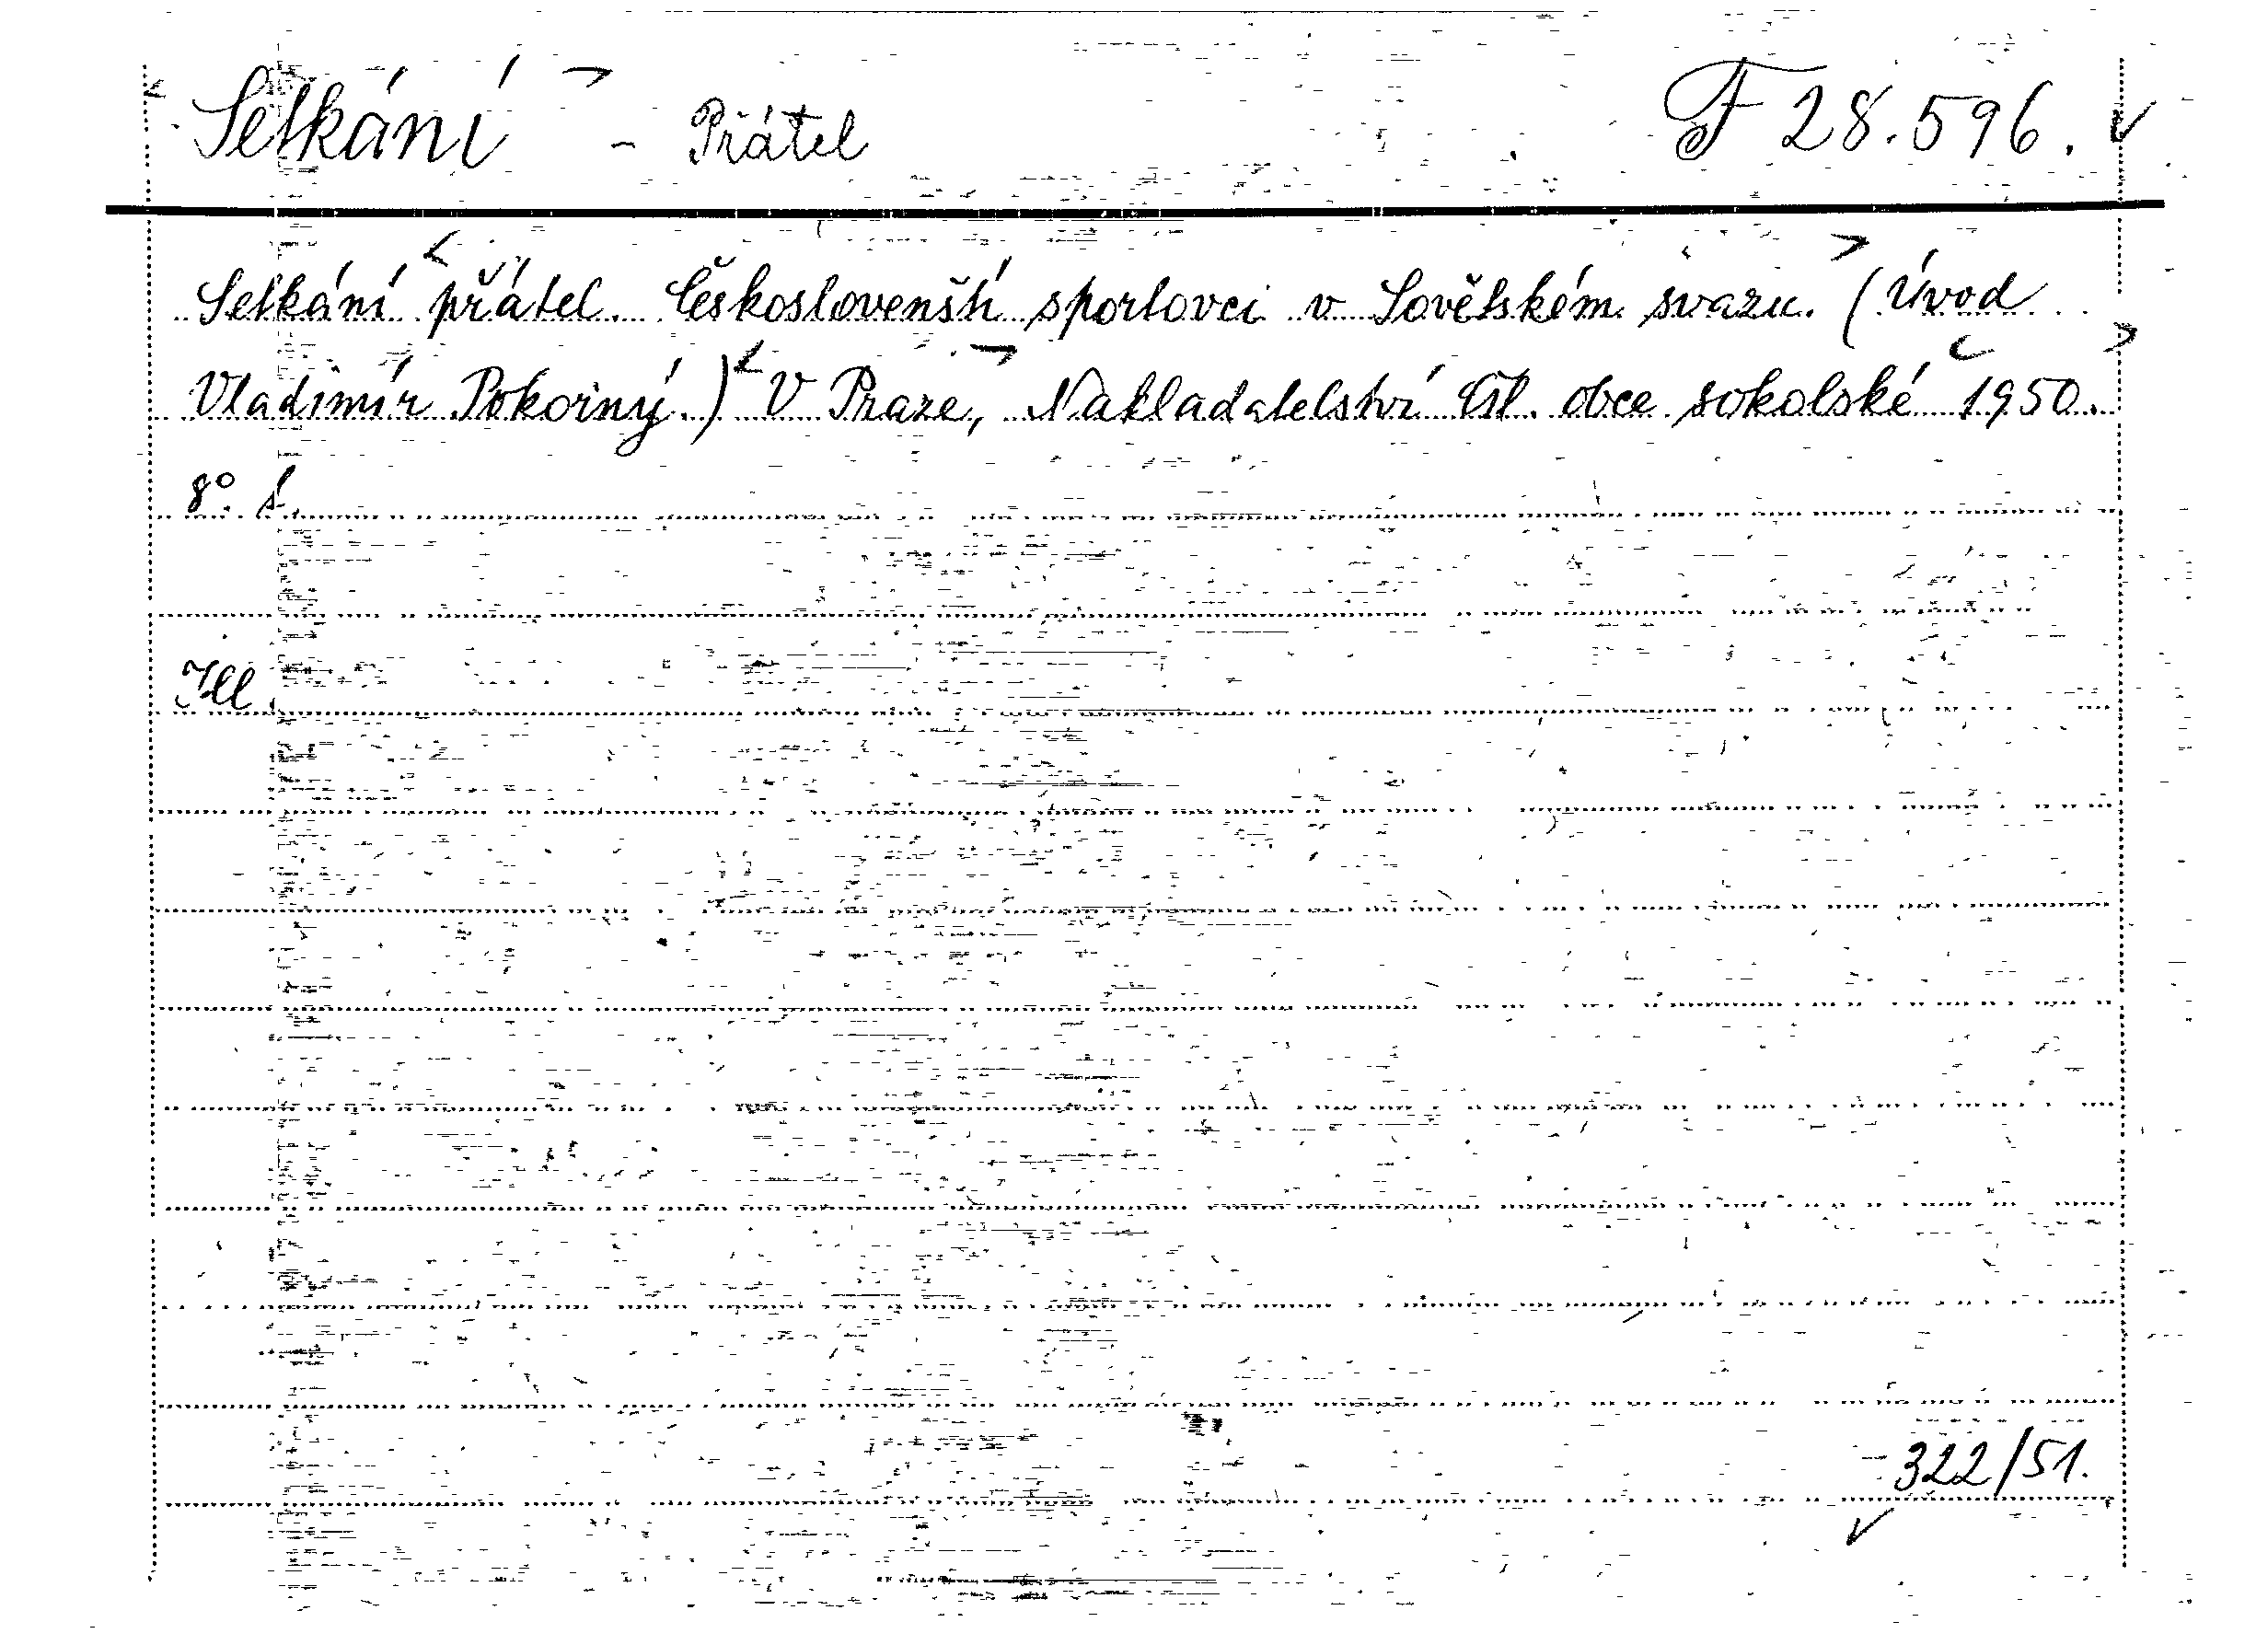 Setkání - Přátel F 28.596.
Setkání přátel. Českoslovenští sportovci v Sovětském svazu. (Úvod
Vladimír Pokorný.) V Praze, Nakladatelství Čsl. obce sokolské 1950.
8°. s.
Ill.
322/51.